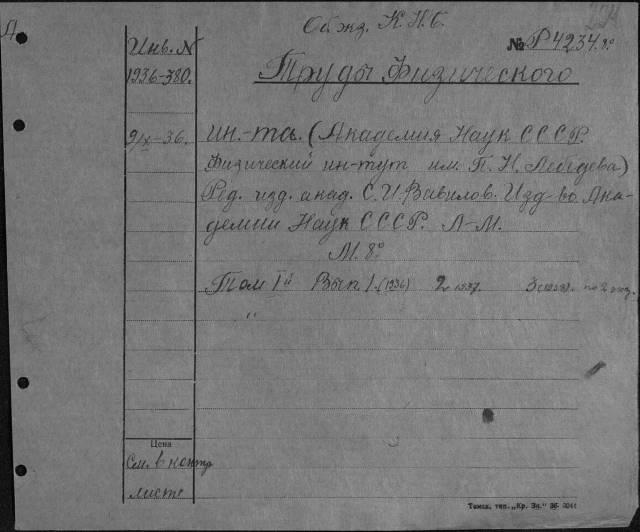 Д
Обжз. К.Н.Б.
294
Инв. N
1936-380.
№ Р4234. 8°
Труды Физического
9/IX-36.
ин.-та. (Академия Наук СССР.
Физический ин-тут им. П. Н. Лебедева)
Ред. изд. акад. С. И. Вавилов. Изд-во Ака-
демии Наук СССР. Л-М.
М. 8°
Том I й Вып 1. (1936) 2 1937. 3 (1938). по 2 экз.
"
Цена
См. в контр
листе
Томск, тип. „Кр. Зн." 36